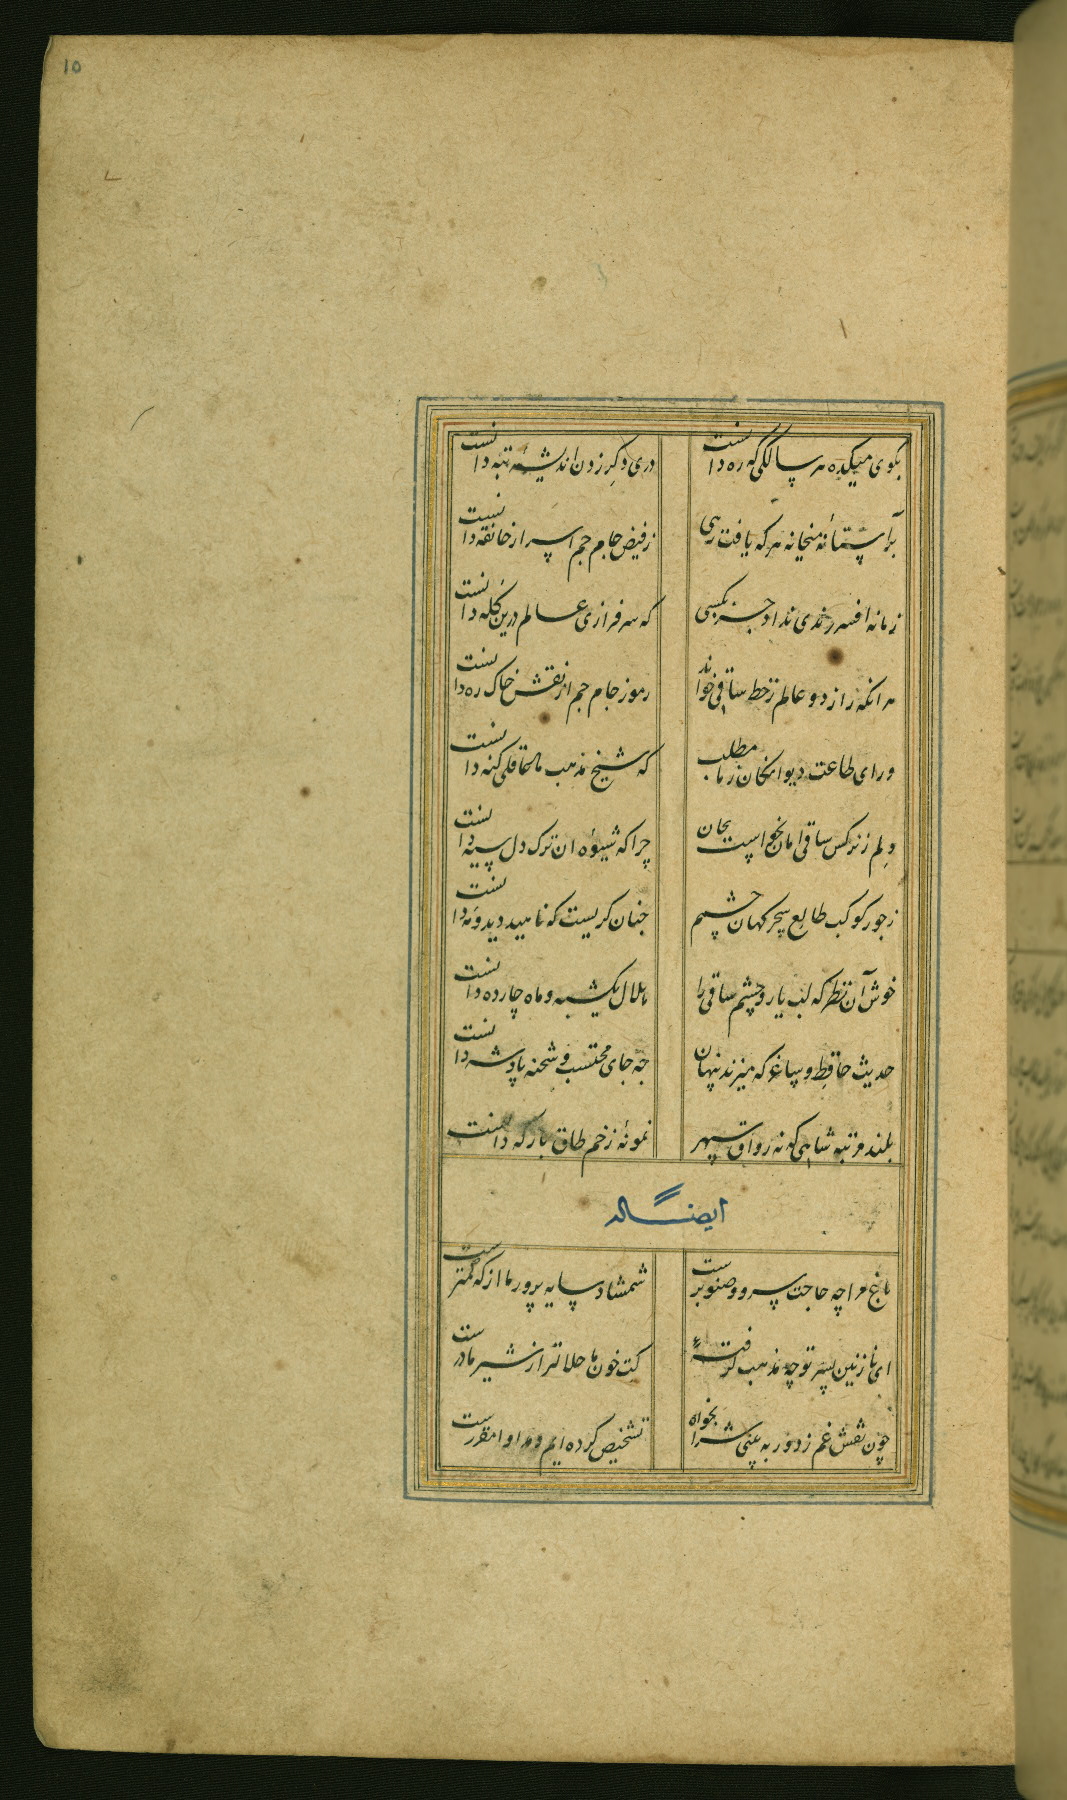 ۱۵
بکوی میکده هر سالکی که ره دانست
دری دکر زدن اندیشهٔ تبه دانست
بر آستانهٔ میخانه هر که یافت رهی
ز فیض جام جم اسرار خانقه دانست
زمانه افسر رندی نداد جز بکسی
که سرفرازی عالم درین کله دانست
هر انکه راز دو عالم ز خط ساقی خواند
رموز جام جم از نقش خاک ره دانست
ورای طاعت دیوانکان ز ما مطلب
که شیخ مذهب ما عاقلی کنه دانست
دلم ز نرکس ساقی امان نخواست بجان
چرا که شیوهٔ ان ترک دل سیه دانست
ز جور کوکب طالع سحرکهان چشمم
چنان کریست که ناهید دید و مه دانست
خوش آن نظر که لب یار و چشم ساقی را
هلال یکشبه و ماه چارده دانست
حدیث حافظ و ساغر که میزند پنهان
چه جای محتسب و شحنه پادشه دانست
بلند مرتبه شاهی که نه رواق سپهر
نمونهٔ ز خم طاق بارکه دانست
ایضاله
باغ مرا چه حاجت سرو و صنوبرست
شمشاد سایه پرور ما از که کمترست
ای نازنین پسر تو چه مذهب کرفتهٔ
کت خون ما حلالتر از شیر مادرست
چون نقش غم ز دور به بینی شراب بخواه
تشخیص کرده ایم و مداوا مقررست